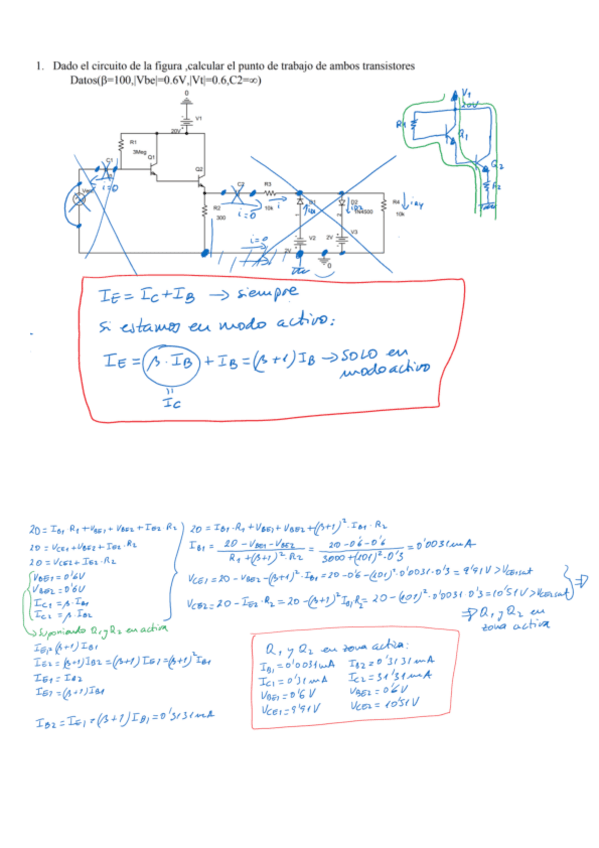 1. Dado el circuito de la figura ,calcular el punto de trabajo de ambos transistores
Datos(β=100,|Vbe|=0.6V,|Vt|=0.6,C2=∞)
0
V1
20V
R1
3Meg
Q1
Q2
C1
i=0
R2
300
C2
i=0
R3
10k
i=0
D1
D2
V2
2V
V3
R4
10k
0
V1
20V
R1
Q1
Q2
R2
IE = IC + IB → siempre
si estamos en modo activo:
IE = β · IB + IB = (β+1) IB → SOLO en modo activo
=
IC
20 = IB1 R1 + VBE1 + VBE2 + IE2 R2
20 = VCE1 + VBE2 + IE2 · R2
20 = VCE2 + IE2 · R2
VBE1 = 0'6V
VBE2 = 0'6V
IC1 = β · IB1
IC2 = β IB2
→ Suponiendo Q1 y Q2 en activa
IE1 = (β+1) IB1
IE2 = (β+1) IB2 = (β+1) IE1 = (β+1)² IB1
IE1 = IB2
IE1 = (β+1) IB1
IB2 = IE1 = (β+1) IB1 = 0'3131mA
20 = IB1 · R1 + VBE1 + VBE2 + (β+1)² · IB1 · R2
IB1 = 20 - VBE1 - VBE2 / R1 + (β+1)² · R2 = 20 - 0'6 - 0'6 / 3000 + (101)² · 0'3 = 0'0031mA
VCE1 = 20 - VBE2 - (β+1)² · IB1 = 20 - 0'6 - (101)² · 0'0031 · 0'3 = 9'91 V > VCEsat
VCE2 = 20 - IE2 · R2 = 20 - (β+1)² IB1 R2 = 20 - (101)² · 0'0031 0'3 = 10'51V > VCEsat
⇒ Q1 y Q2 en zona activa
Q1 y Q2 en zona activa:
IB1 = 0'0031mA IB2 = 0'3131mA
IC1 = 0'31mA IC2 = 31'31mA
VBE1 = 0'6 V VBE2 = 0'6V
VCE1 = 9'91V VCE2 = 10'51V